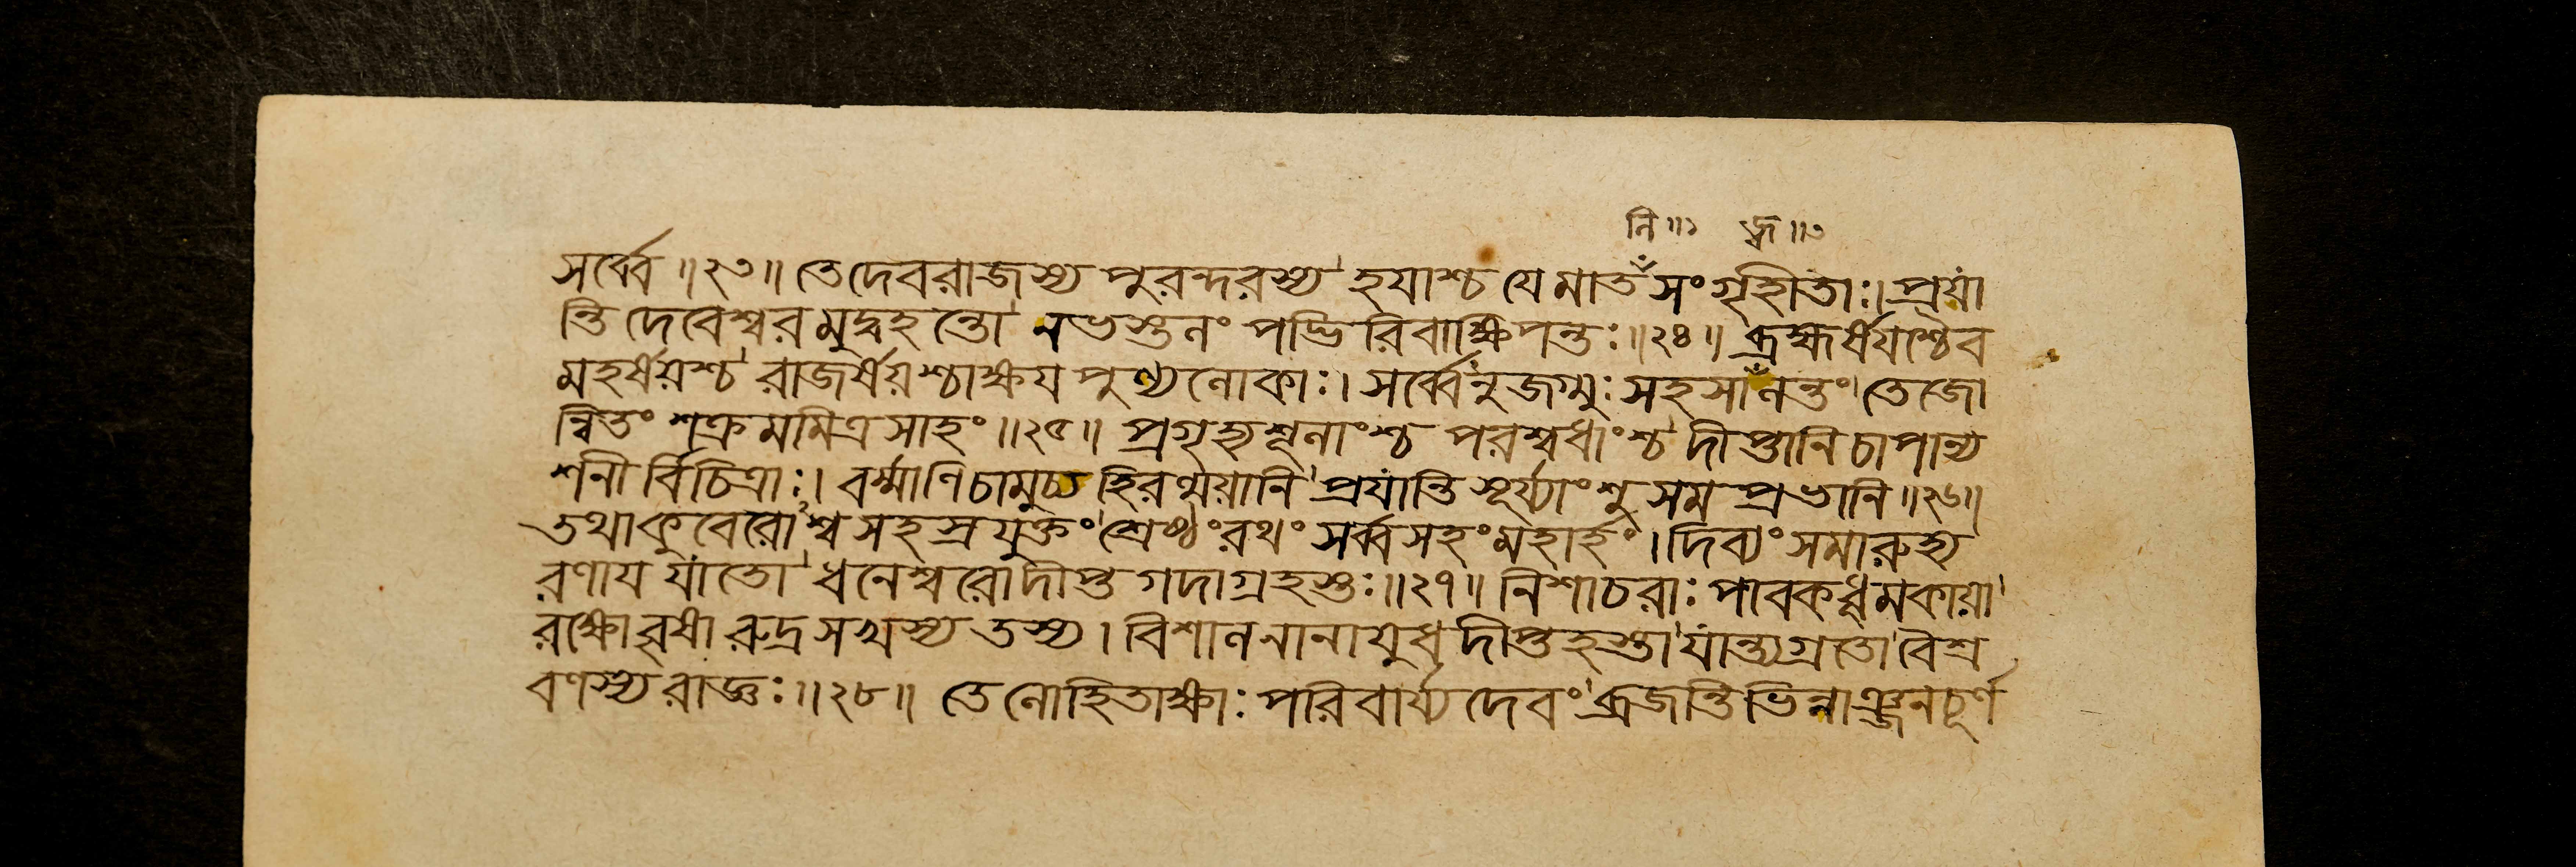 নি॥১ হ্ন॥৩
সর্ব্বে॥২৩॥ তেদেবরাজস্য পুরন্দরস্য' হযাশ্চ যে মাতঁসংগৃহীতাঃ। প্রযা
ন্তি দেবেশ্বরমুদ্বহন্তো' নভস্তলং পদ্ভিরিবাক্ষিপন্তঃ॥২৪॥ ব্রহ্মর্ষযশ্চৈব
মহর্ষয়শ্চ' রাজর্ষয়শ্চাক্ষয পুণ্যলোকাঃ। সর্ব্বেনুজগ্মুঃ সহসাঁনন্তং' তেজো
ন্বিতং শক্রমমিত্রসাহং॥২৫॥ প্রগৃহ্যশূলাংশ্চ পরশ্বধাংশ্চ' দীপ্তানি চাপান্য
শনীর্বিচিত্রাঃ। বর্ম্মাণিচামুচ্য হিরণ্ময়ানি' প্রযান্তি সূর্য্যাংশু সমপ্রভানি॥২৬॥
তথাকুবেরো'শ্ব সহস্রযুক্তং' শ্রেষ্ঠংরথং সর্ব্বসহংমহার্হং। দিব্যংসমারুহ্য
রণায যাতো' ধনেশ্বরোদীপ্তগদাগ্রহস্তঃ॥২৭॥ নিশাচরাঃ পাবকধূমকায়া'
রক্ষোবৃষা রুদ্রসখস্য তস্য। বিশালনানাযুধদীপ্তহস্তা' যান্ত্যগ্রতো' বৈশ্র
বণস্য রাজ্ঞঃ॥২৮॥ তেলোহিতাক্ষাঃ পরিবার্য্যদেবং' ব্রজন্তিভিন্নাঞ্জনচূর্ণ